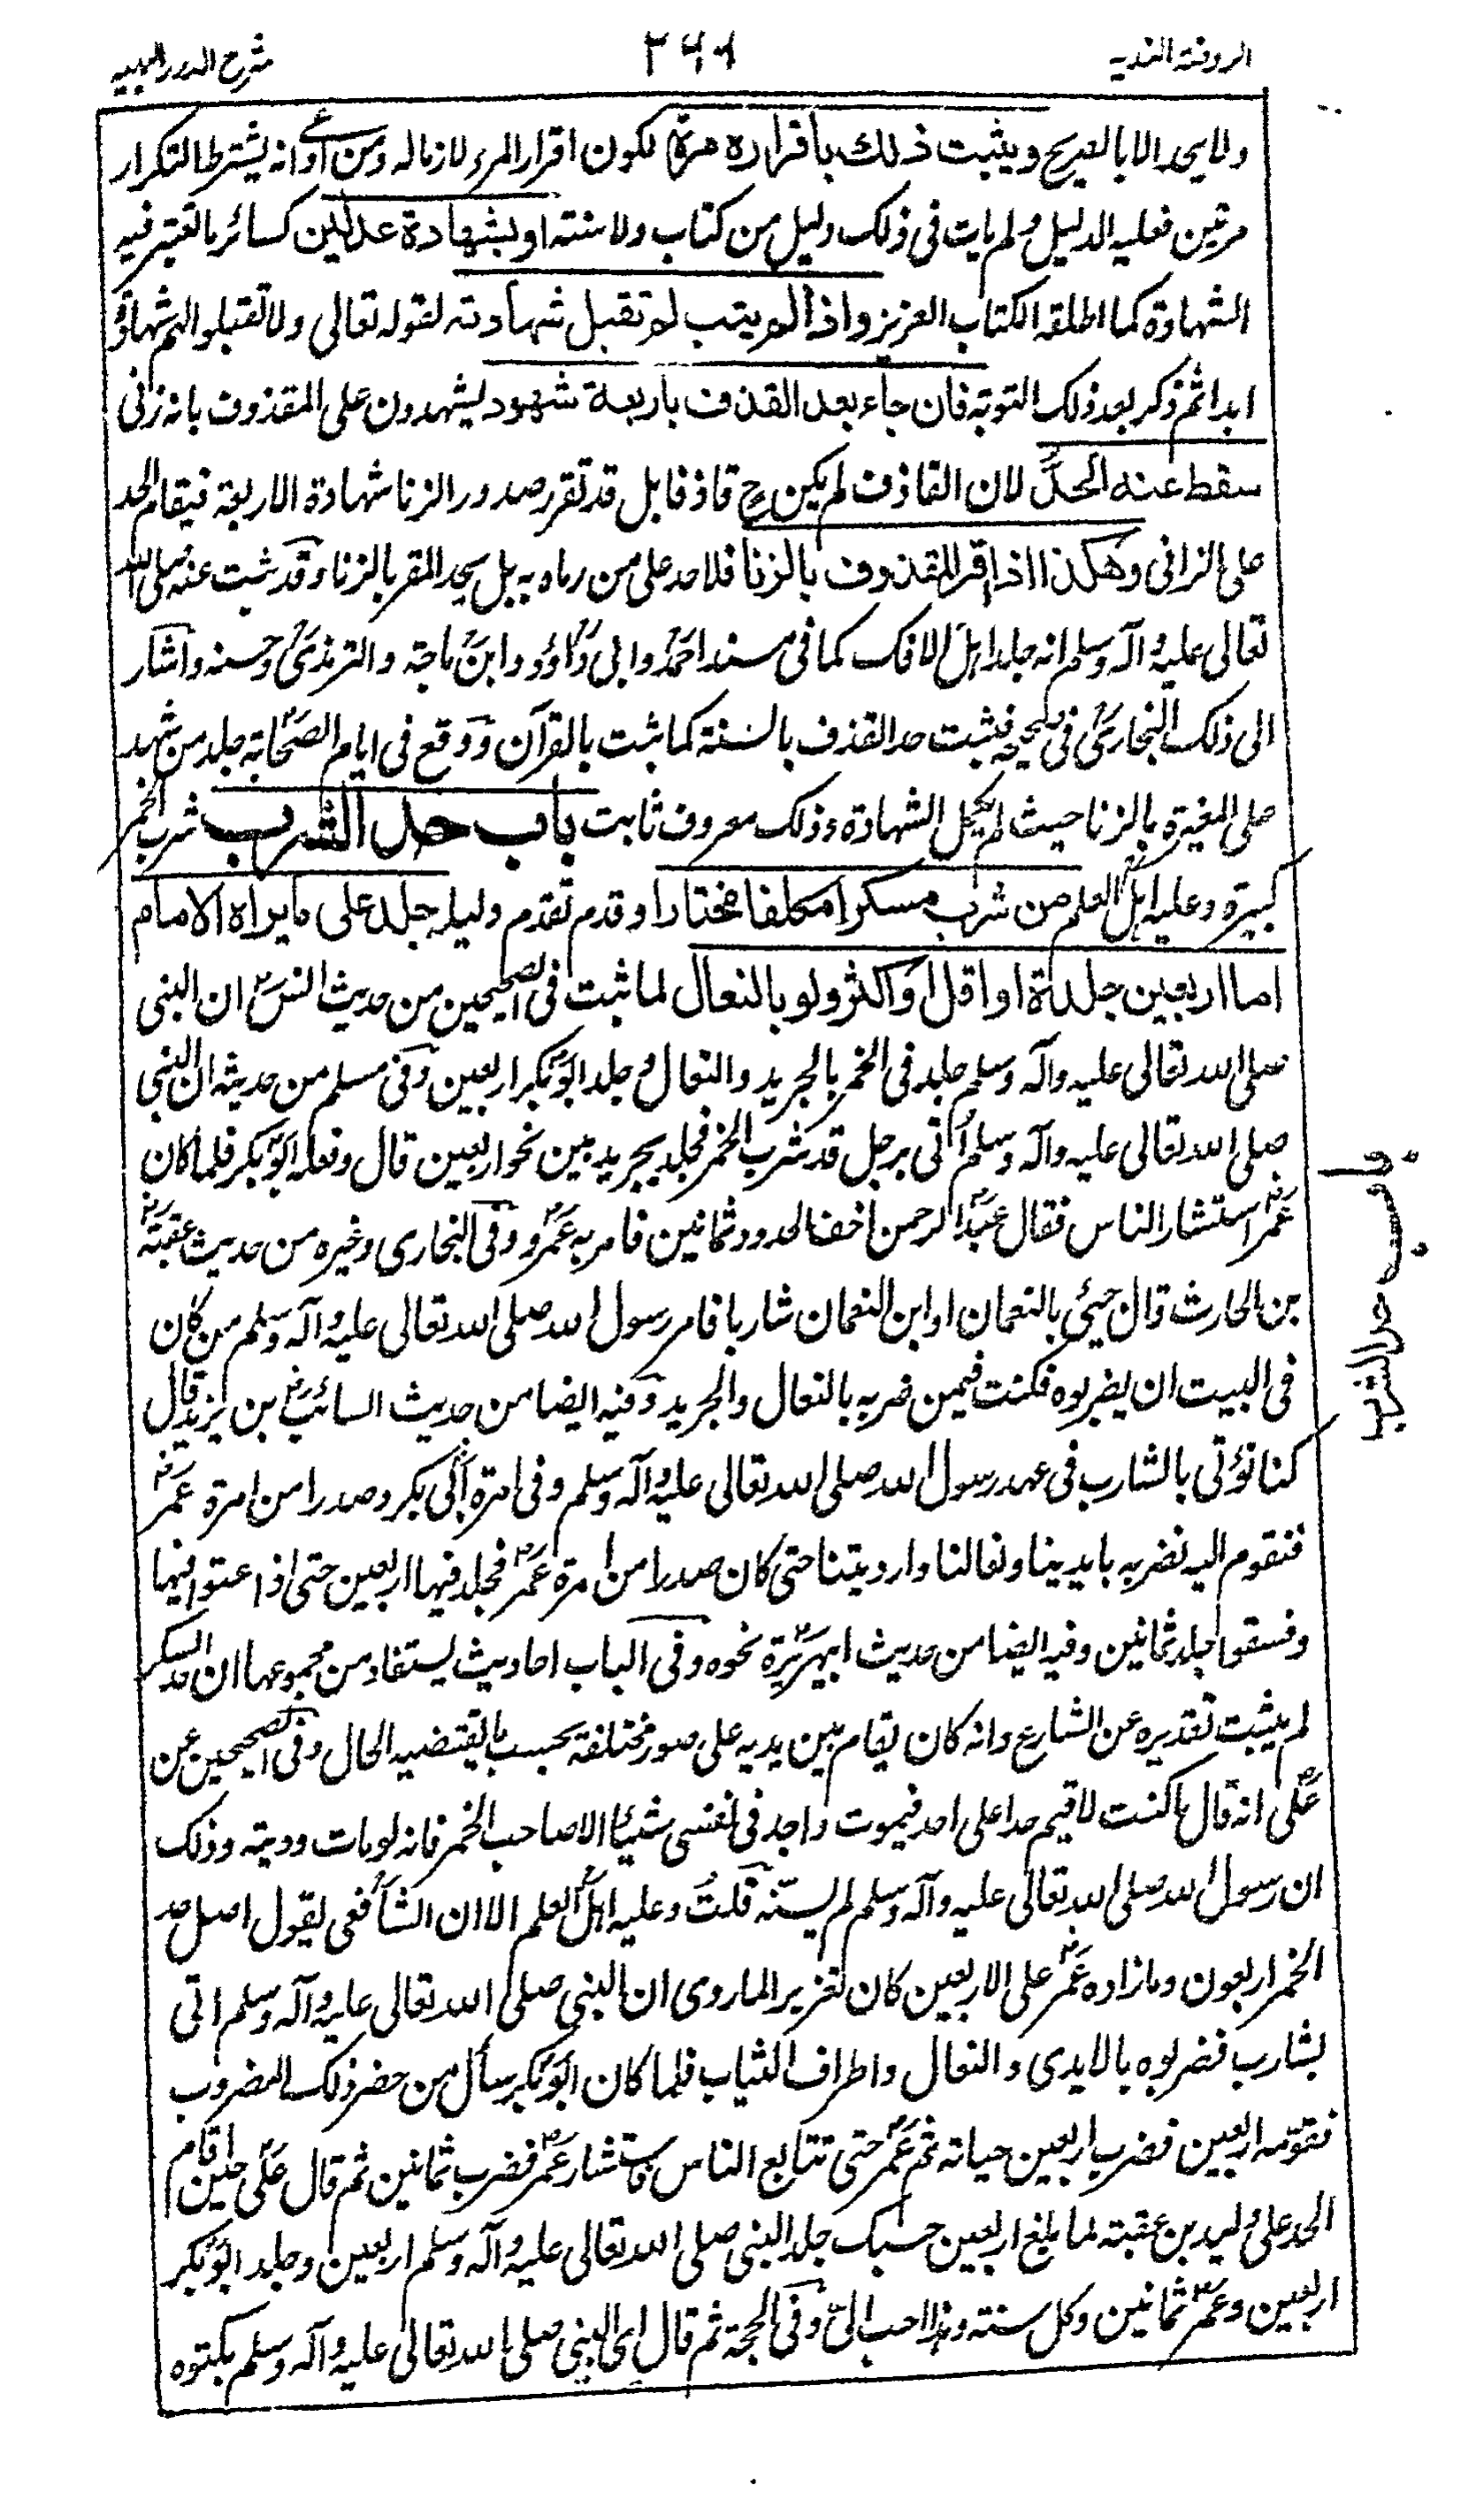 الروضة الندية
٣٦١
شرح الدرر البهية
ولا يحد الا بالصريح ويثبت ذلك باقراره مرة لكون اقرار المرء لازما له ومن ادعى انه يشترط التكرار
مرتين فعليه الدليل ولم يات فى ذلك دليل من كتاب ولا سنة او بشهادة عدلين كسائر ما تعتبر فيه
الشهادة كما اطلقه الكتاب العزيز واذا لم يتب لم تقبل شهادته لقوله تعالى ولا تقبلوا لهم شهادة
ابدا ثم ذكر بعد ذلك التوبة فان جاء بعد القذف باربعة شهود يشهدون على المقذوف بانه زنى
سقط عنه الحد لان القاذف لم يكن ح قاذفا بل قد تقرر صدور الزنا شهادة الاربعة فيقام الحد
على الزانى وهكذا اذا اقر المقذوف بالزنا فلا حد على من رماه به بل يحد المقر بالزنا وقد ثبت عنه صلى الله
تعالى عليه وآله وسلم انه جلد اهل الافك كما فى مسند احمد وابى داؤد وابن ماجة والترمذى وحسنه واشار
الى ذلك البخارى فى صحيحه فثبت حد القذف بالسنة كما ثبت بالقرآن ووقع فى ايام الصحابة جلد من شهد
على المغيرة بالزنا حيث لم يكمل الشهادة وذلك معروف ثابت باب حد الشرب شرب الخمر
كبيرة وعليه اهل العلم من شرب مسكرا مكلفا مختارا وقد تقدم دليله جلد على ما يراه الامام
اما اربعين جلدة او اقل او اكثر ولو بالنعال لما ثبت فى الصحيحين من حديث انس ان النبى
صلى الله تعالى عليه وآله وسلم جلد فى الخمر بالجريد والنعال وجلد ابو بكر اربعين وفى مسلم من حديثه ان النبى
صلى الله تعالى عليه وآله وسلم اتى برجل قد شرب الخمر فجلد بجريدتين نحو اربعين قال وفعله ابو بكر فلما كان
عمر استشار الناس فقال عبد الرحمن اخف الحدود ثمانين فامر به عمر وفى البخارى وغيره من حديث عقبة
بن الحارث قال جيئ بالنعمان او ابن النعمان شاربا فامر رسول الله صلى الله تعالى عليه وآله وسلم من كان
فى البيت ان يضربوه فكنت فيمن ضربه بالنعال والجريد وفيه ايضا من حديث السائب بن يزيد قال
كنا نؤتى بالشارب فى عهد رسول الله صلى الله تعالى عليه وآله وسلم وفى امرة ابى بكر وصدرا من امرة عمر
فنقوم اليه نضربه بايدينا ونعالنا وارديتنا حتى كان صدرا من امرة عمر فجلد فيها اربعين حتى اذا عتوا فيها
وفسقوا جلد ثمانين وفيه ايضا من حديث ابيهريرة نحوه وفى الباب احاديث يستفاد من مجموعها ان حد السكر
لم يثبت تقديره عن الشارع وانه كان يقام بين يديه على صور مختلفة بحسب ما يقتضيه الحال وفى الصحيحين عن
على انه قال ما كنت لاقيم حدا على احد فيموت واجد فى نفسى شيئا الا صاحب الخمر فانه لو مات وديته وذلك
ان رسول الله صلى الله تعالى عليه وآله وسلم لم يسنه قلت وعليه اهل العلم الا ان الشافعى يقول اصل حد
الخمر اربعون وما زاده عمر على الاربعين كان تعزيرا لما روى ان النبى صلى الله تعالى عليه وآله وسلم اتى
بشارب فضربوه بالايدى والنعال واطراف الثياب فلما كان ابو بكر سأل من حضر ذلك المضروب
فقومه اربعين فضرب اربعين حياته ثم عمر حتى تتابع الناس فاستشار عمر فضرب ثمانين ثم قال على حين اقام
الحد على وليد بن عقبة لما بلغ اربعين حسبك جلد النبى صلى الله تعالى عليه وآله وسلم اربعين وجلد ابو بكر
اربعين وعمر ثمانين وكل سنة وهذا احب الى وفى الحجة ثم قال اى النبى صلى الله تعالى عليه وآله وسلم بكتوه
حد الشرب